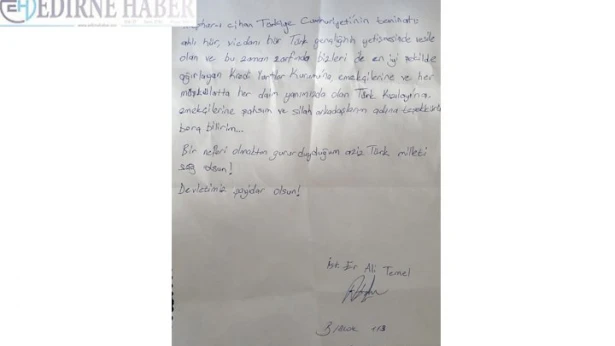 EDİRNE HABER
cihan Türkiye Cumhuriyetinin teminatı
aklı hür, vicdanı hür Türk gençliğinin yetişmesinde vesile
olan ve bu zaman zarfında bizleri de en iyi şekilde
ağırlayan Kredi Yurtlar Kurumu'na, emekçilerine ve her
müşkülatta her daim yanımızda olan Türk Kızılayı'na,
emekçilerine şahsım ve silah arkadaşlarım adına teşekkürü
borç bilirim...
Bir neferi olmaktan gurur duyduğum aziz Türk milleti
sağ olsun!
Devletimiz payidar olsun!
İst. Er Ali Temel
B Blok 113